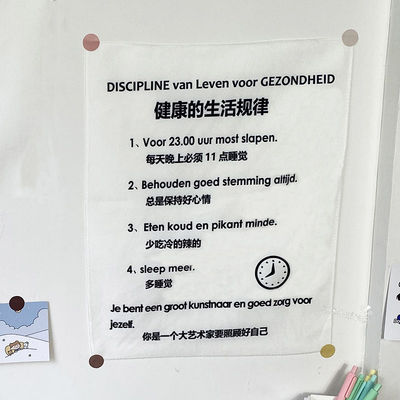 DISCIPLINE van Leven voor GEZONDHEID
健康的生活规律
1、Voor 23.00 uur most slapen.
每天晚上必须 11 点睡觉
2、Behouden goed stemming altijd.
总是保持好心情
3、Eten koud en pikant minde.
少吃冷的辣的
4、sleep meer.
多睡觉
Je bent een groot kunstnaar en goed zorg voor
jezelf.
你是一个大艺术家要照顾好自己